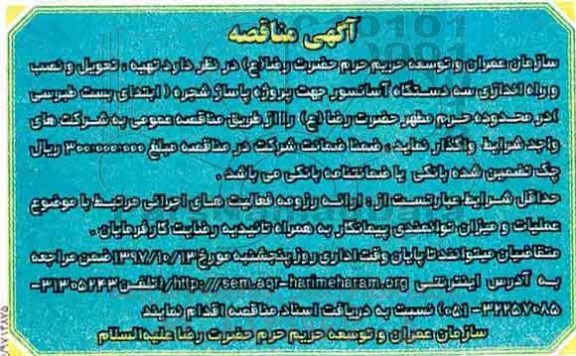 آگهی مناقصه
سازمان عمران و توسعه حریم حرم حضرت رضا(ع) در نظر دارد تهیه ، تحویل و نصب
و راه اندازی سه دستگاه آسانسور جهت پروژه پاساژ شجره ( ابتدای بست طبرسی
)در محدوده حرم مطهر حضرت رضا (ع) را از طریق مناقصه عمومی به شرکت های
واجد شرایط واگذار نماید . ضمنا ضمانت شرکت در مناقصه مبلغ ۳۰۰،۰۰۰،۰۰۰ ریال
چک تضمین شده بانکی یا ضمانتنامه بانکی می باشد .
حداقل شرایط عبارتست از : ارائه رزومه فعالیت های اجرائی مرتبط با موضوع
عملیات و میزان توانمندی پیمانکار به همراه تائیدیه رضایت کارفرمایان .
متقاضیان میتوانند تا پایان وقت اداری روز پنجشنبه مورخ ۱۳۹۷/۱۰/۱۳ ضمن مراجعه
به آدرس اینترنتی http://sem.aqr-harimeharam.org/(تلفن:۳۱۳۰۵۲۴۳-
۳۲۲۵۷۰۸۵-(۰۵۱) نسبت به دریافت اسناد مناقصه اقدام نمایند
سازمان عمران و توسعه حریم حرم حضرت رضا علیه‌السلام